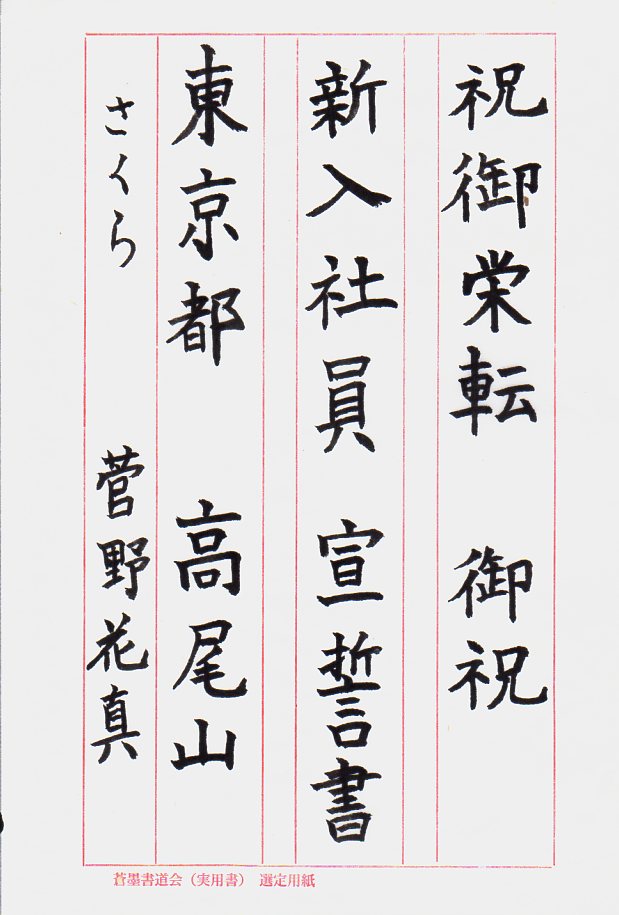 祝御栄転　御祝
新入社員　宣誓書
東京都　高尾山
さくら　菅野花真
蒼墨書道会（実用書）　選定用紙